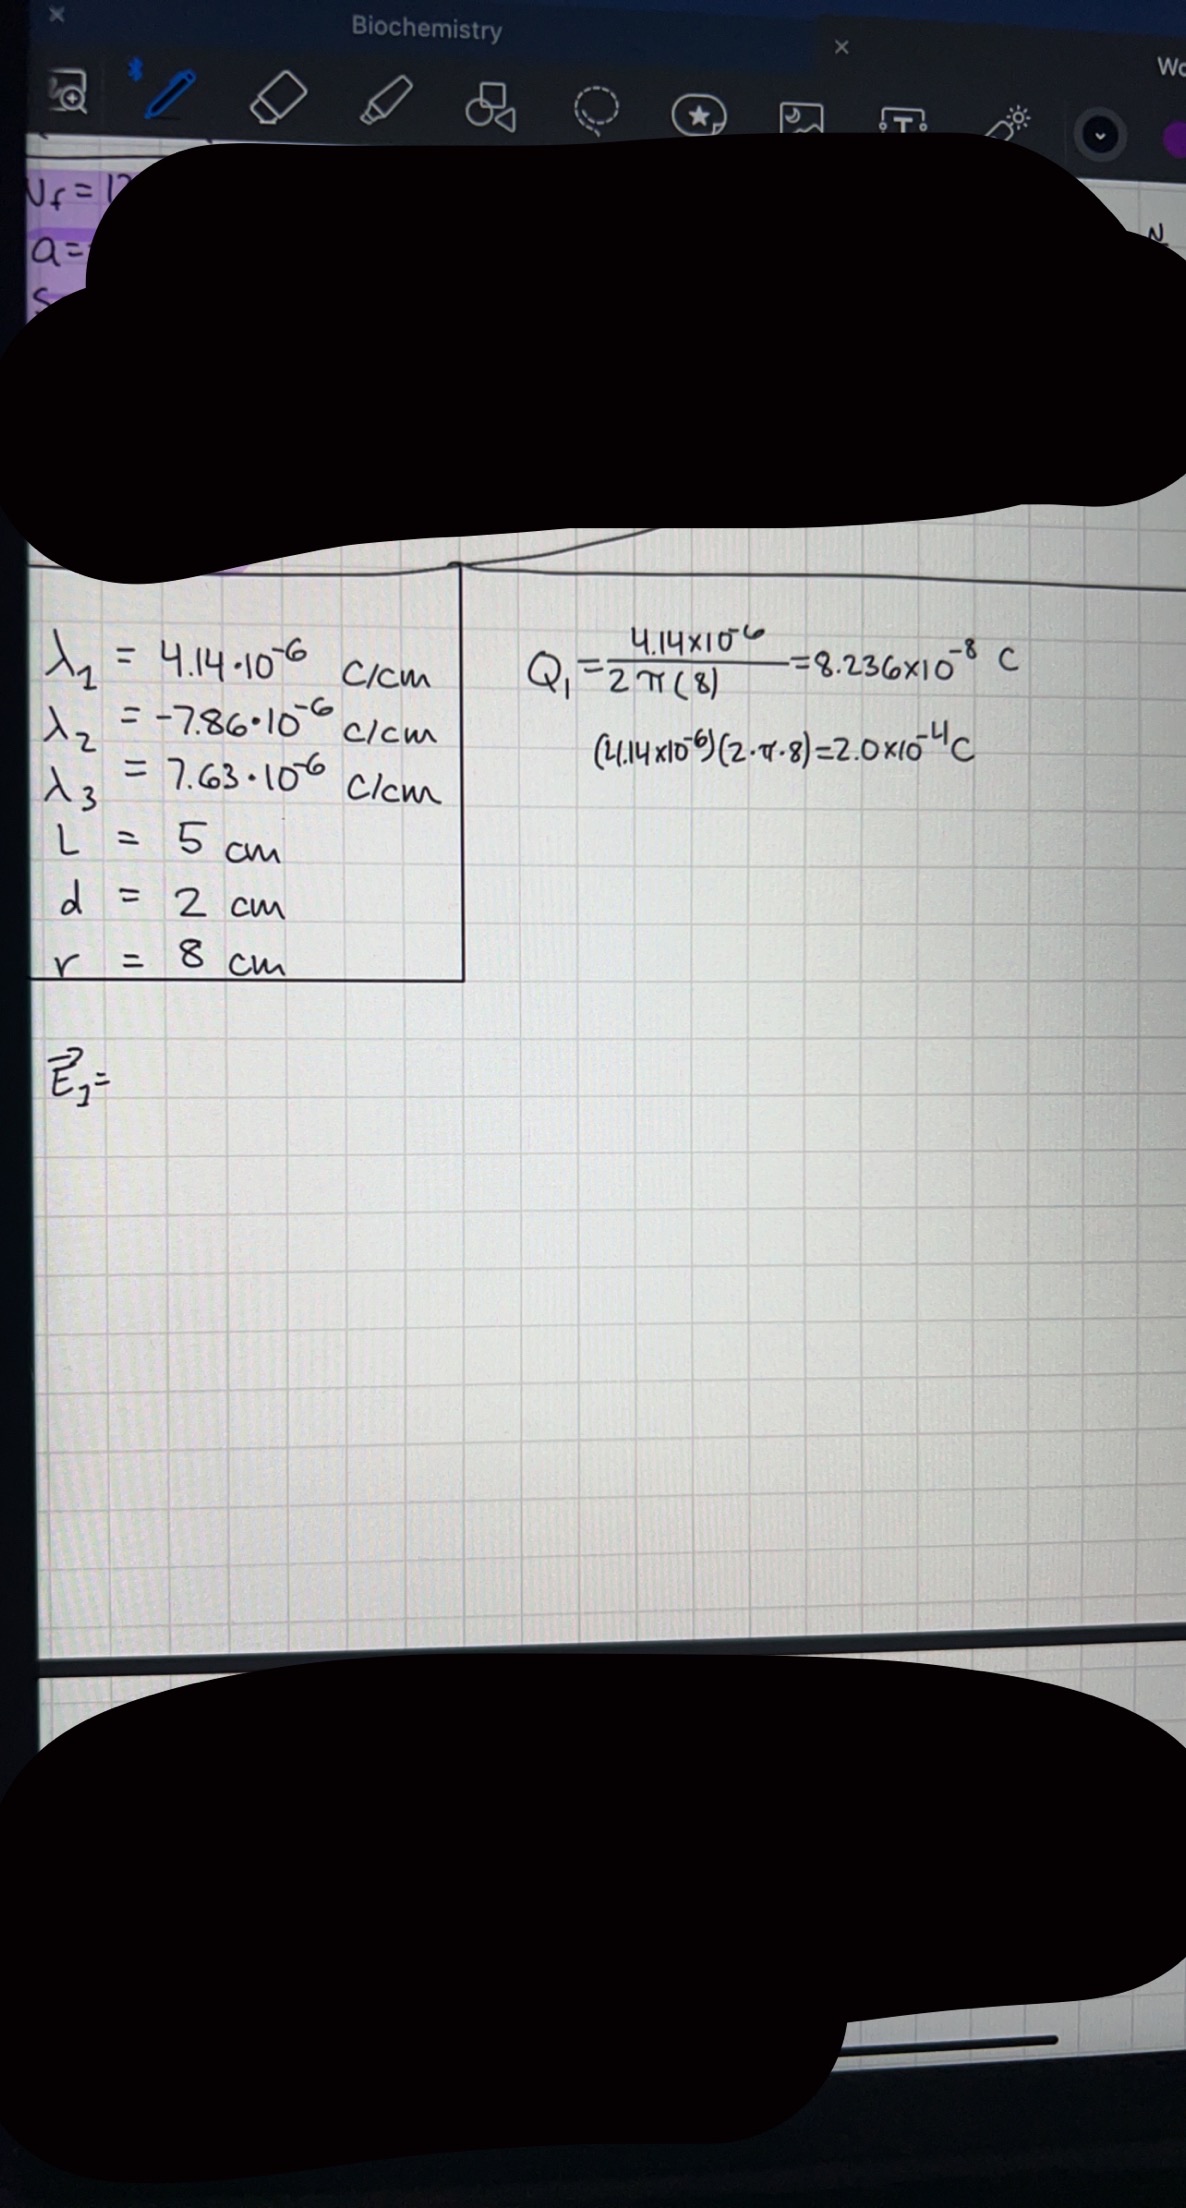 Biochemistry
Wo
T
U_f = 12
a =
S
N
λ₁ = 4.14·10⁻⁶ C/cm
λ₂ = -7.86·10⁻⁶ C/cm
λ₃ = 7.63·10⁻⁶ C/cm
L = 5 cm
d = 2 cm
r = 8 cm
Q₁ = 4.14×10⁻⁶ / 2π(8) = 8.236×10⁻⁸ C
(4.14×10⁻⁶)(2·π·8) = 2.0×10⁻⁴ C
E⃗₁ =